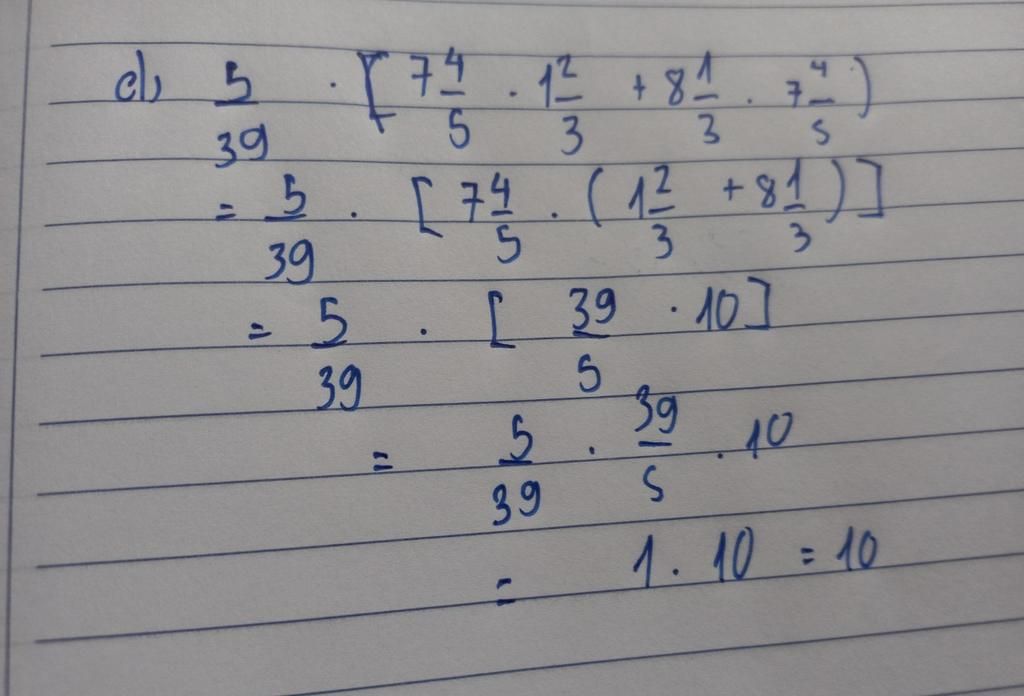 d) 5/39 · [ 7 4/5 · 1 2/3 + 8 1/3 · 7 4/5 )
= 5/39 · [ 7 4/5 · ( 1 2/3 + 8 1/3 ) ]
= 5/39 · [ 39/5 · 10 ]
= 5/39 · 39/5 · 10
= 1 · 10 = 10